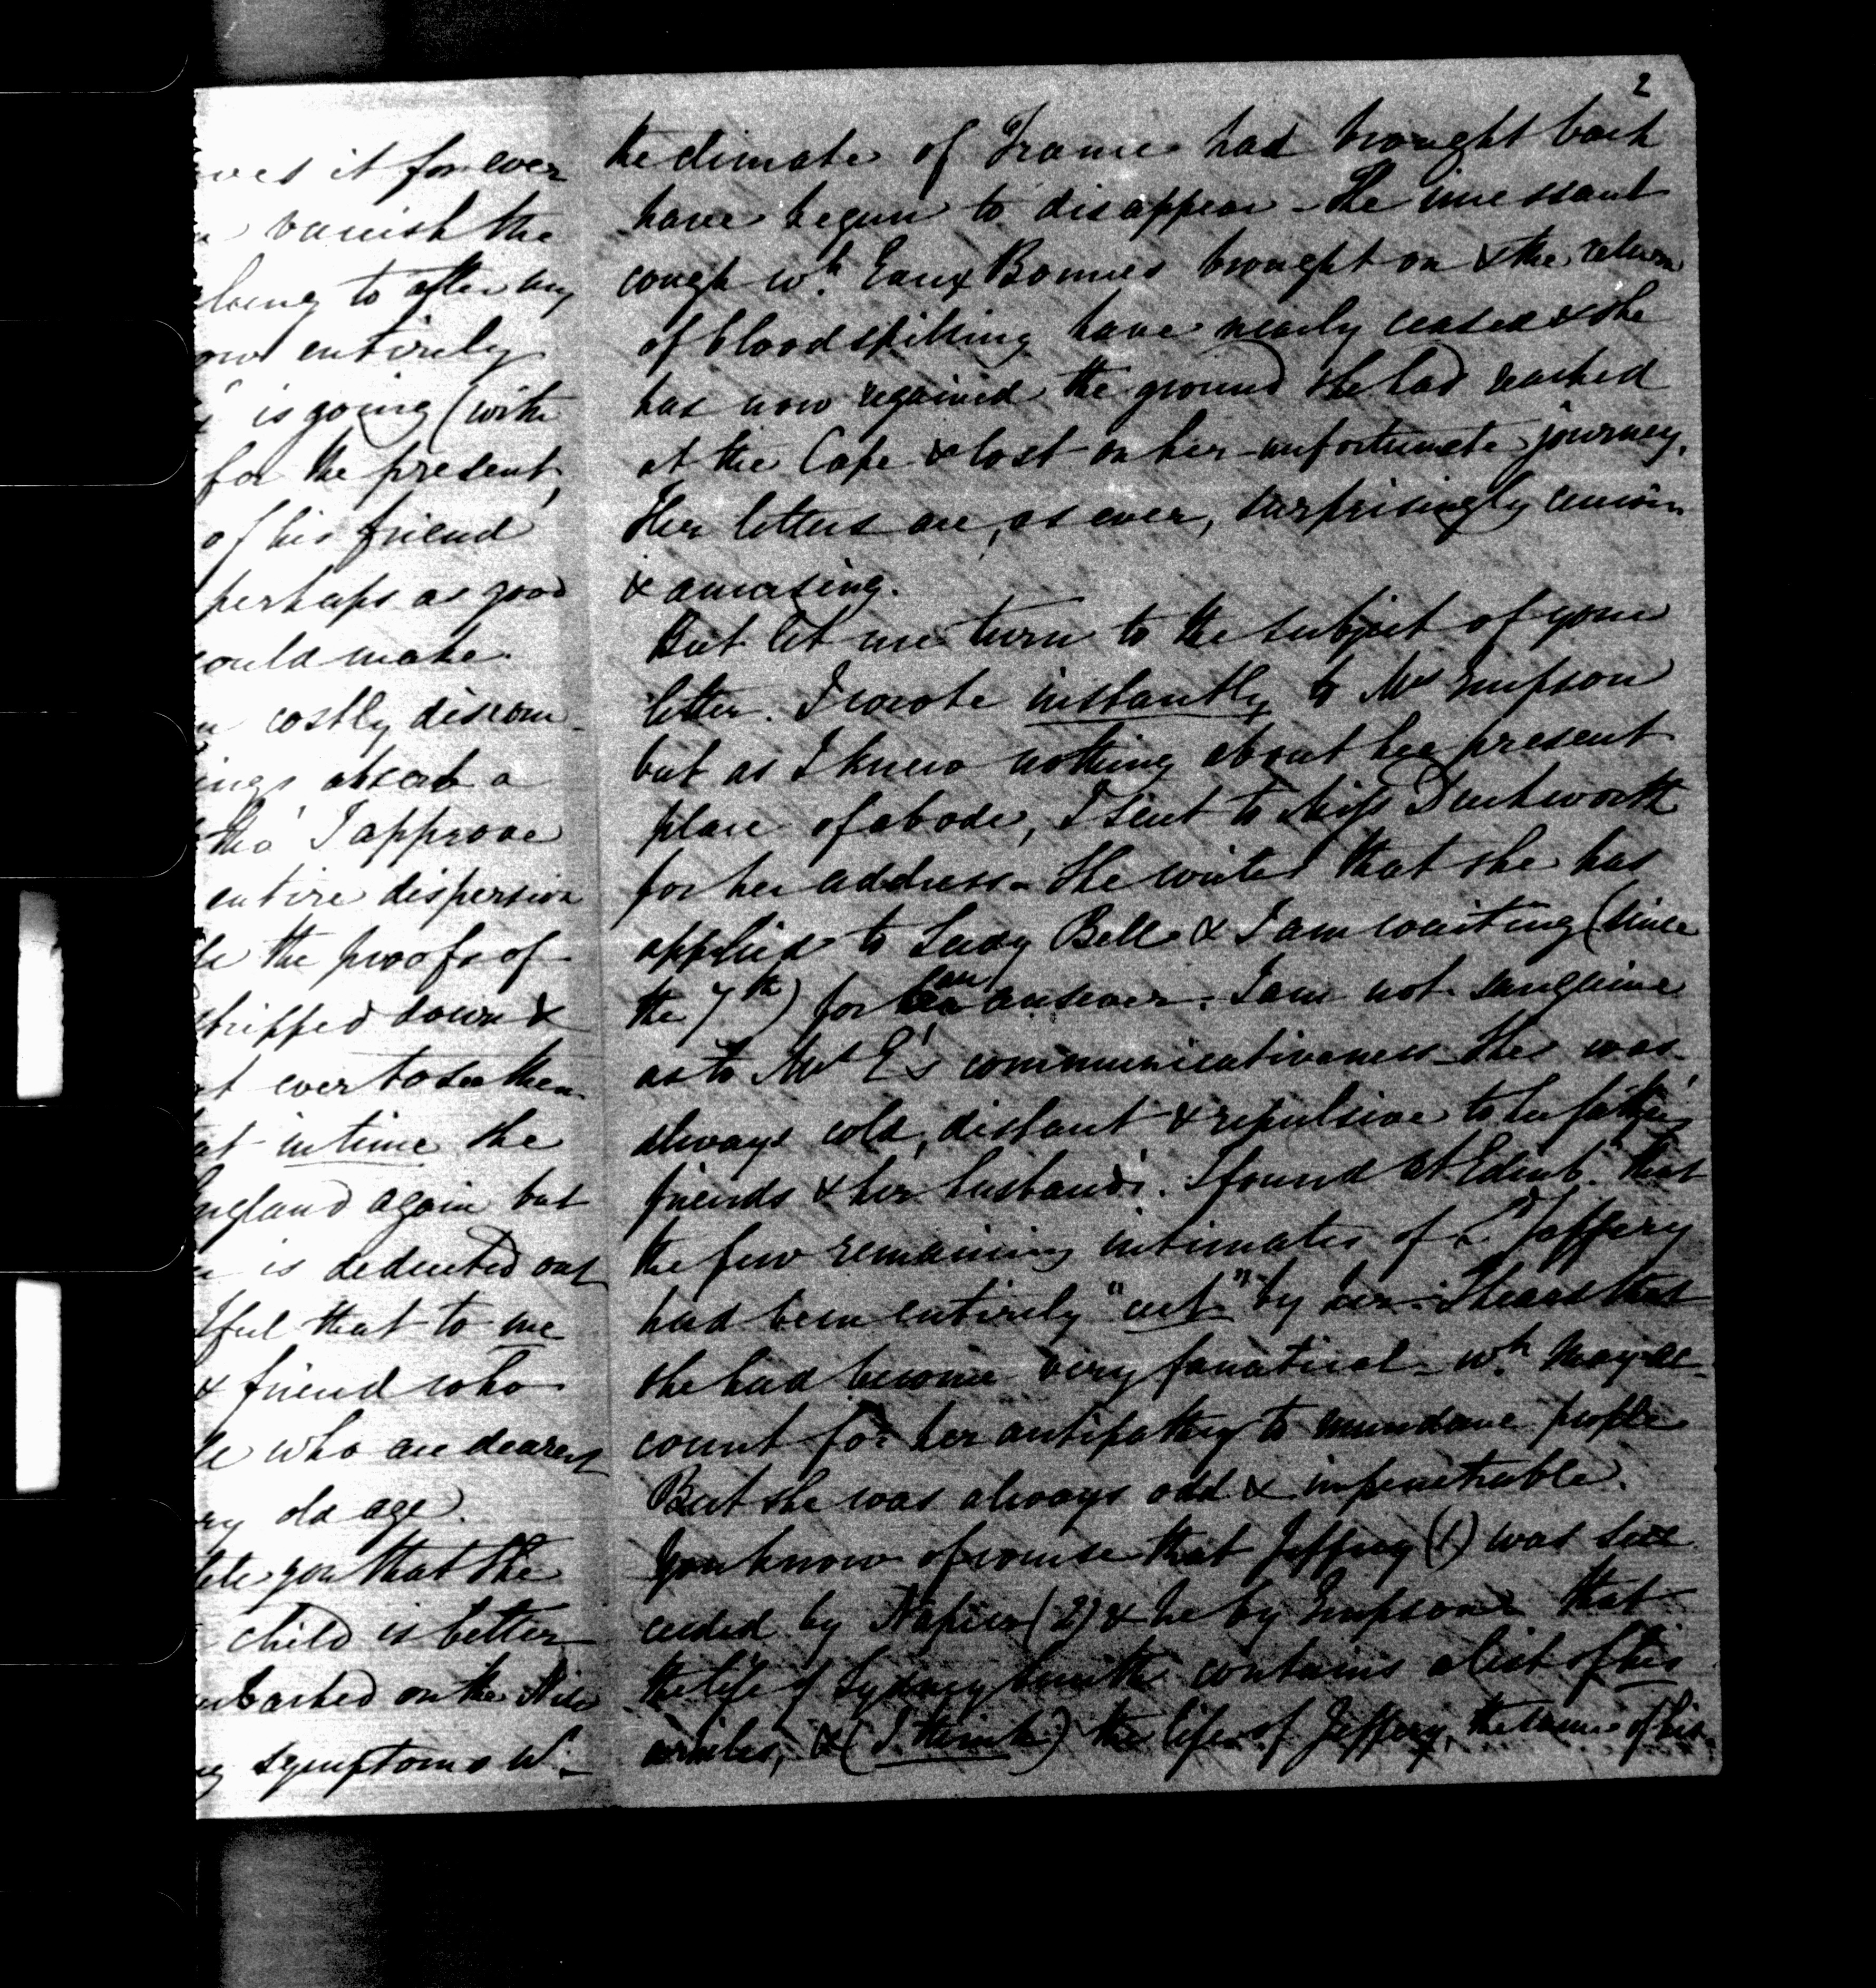 2
ves it for ever
vanish the
long to after any
entirely
is going (with
for the present,
of his friend
perhaps as good
could make.
costly discom-
ings absorb a
tho' I approve
entire dispersion
the proofs of
stripped down &
ever to see them.
at in time she
England again but
is deducted out
that to me
& friend who
who are dearest
old age.
you that the
child is better
embarked on the Nile
symptoms wh.
the climate of France had brought back
have begun to disappear - The incessant
cough wh. Eaux Bonnes brought on & the return
of bloodspitting have nearly ceased & she
has now regained the ground she had reached
at the Cape & lost on her unfortunate journey.
Her letters are, as ever, surprisingly
& amusing.
But let me turn to the subject of your
letter. I wrote instantly to Mrs Empson
but as I knew nothing about her present
place of abode, I sent to Miss Duckworth
for her address - She writes that she has
applied to Lady Bell & I am waiting (since
the 7th) for an answer. I am not sanguine
as to Mrs E's communicativeness - She was
always cold, distant & repulsive to her father's
friends & her husband's. I found at Edinb. that
the few remaining intimates of Ld Jeffery
had been entirely "cut" by her. I heard that
she had become very fanatical - wh. may ac-
count for her antipathy to mundane people
But she was always odd & impenetrable.
You know of course that Jeffrey (1) was suc
ceeded by Napier (2) & he by Empson & that
the life of Sydney Smith contains a list of his
articles, & (I think) the life of Jeffery, the same of his